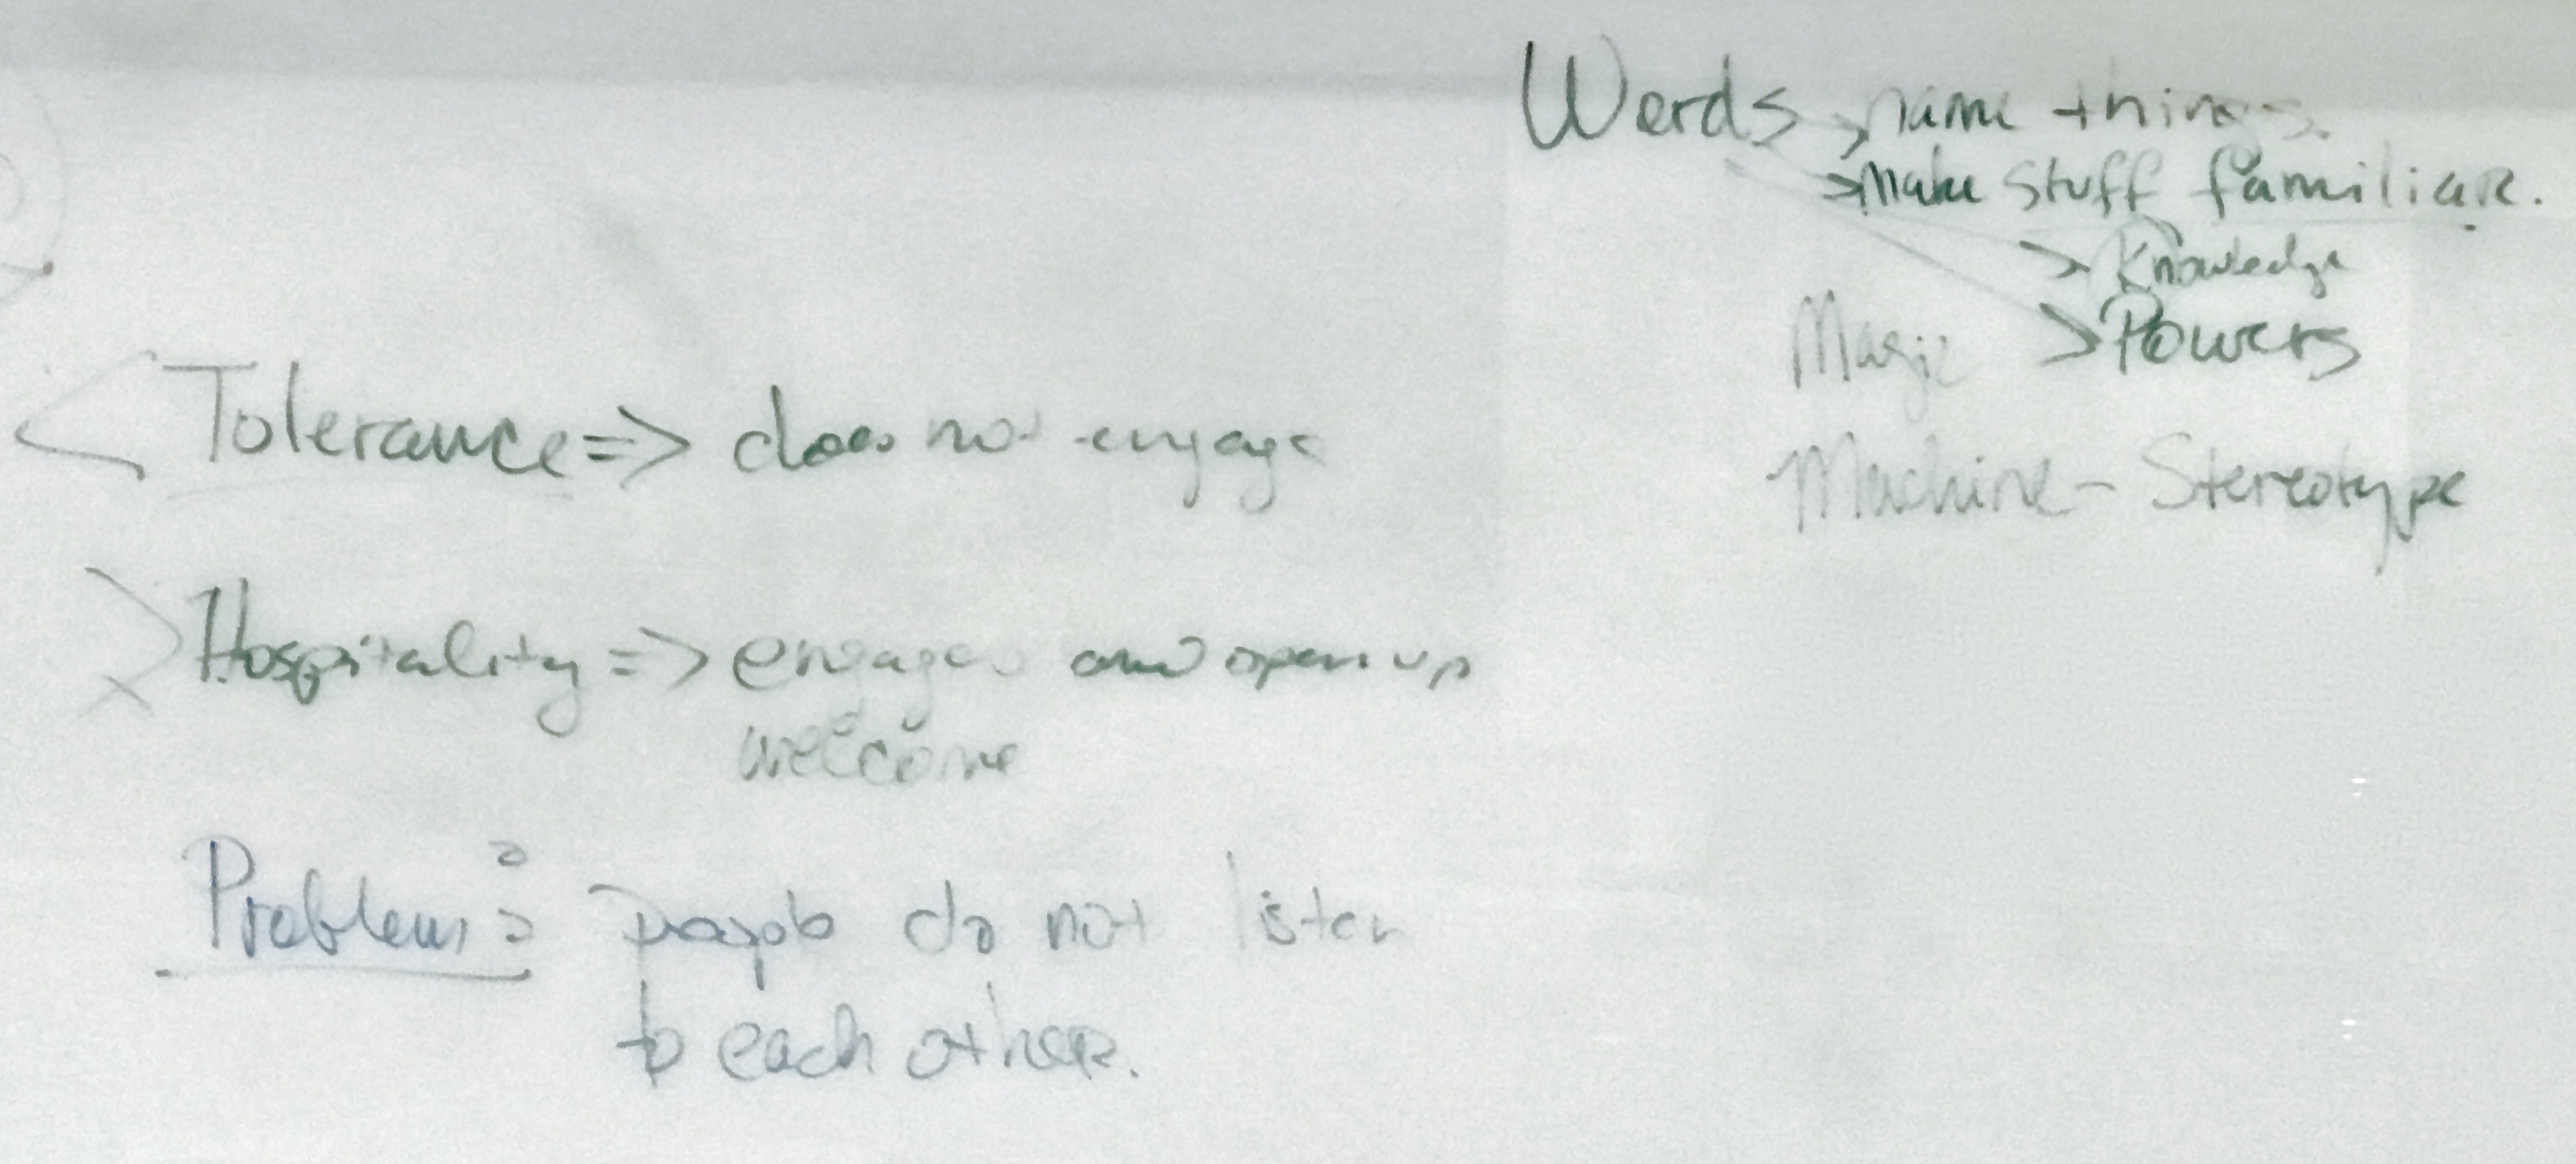 Words → name things.
→ Make stuff familiar.
> Knowledge
Magic > Powers
Machine - Stereotype
< Tolerance => does not engage
> Hospitality => engages and open up
welcome
Problem: people do not listen
to each other.